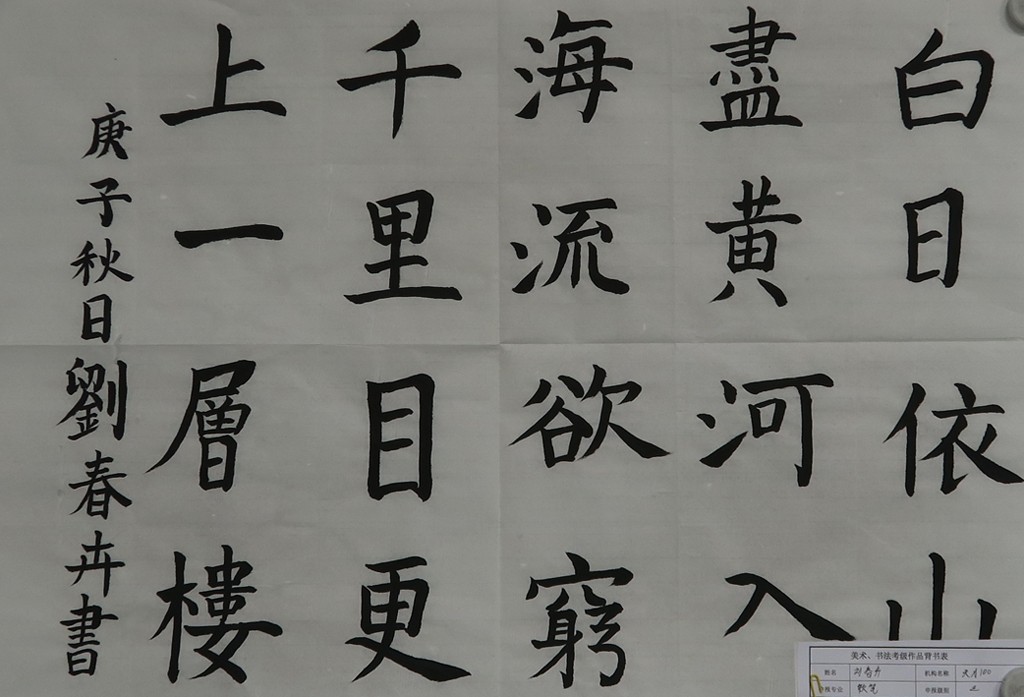 白日依山
盡黄河入
海流欲窮
千里目更
上一層樓
庚子秋日劉春卉書
美术、书法考级作品背书表
姓名 刘春卉 机构名称
考级专业 软笔 申报级别